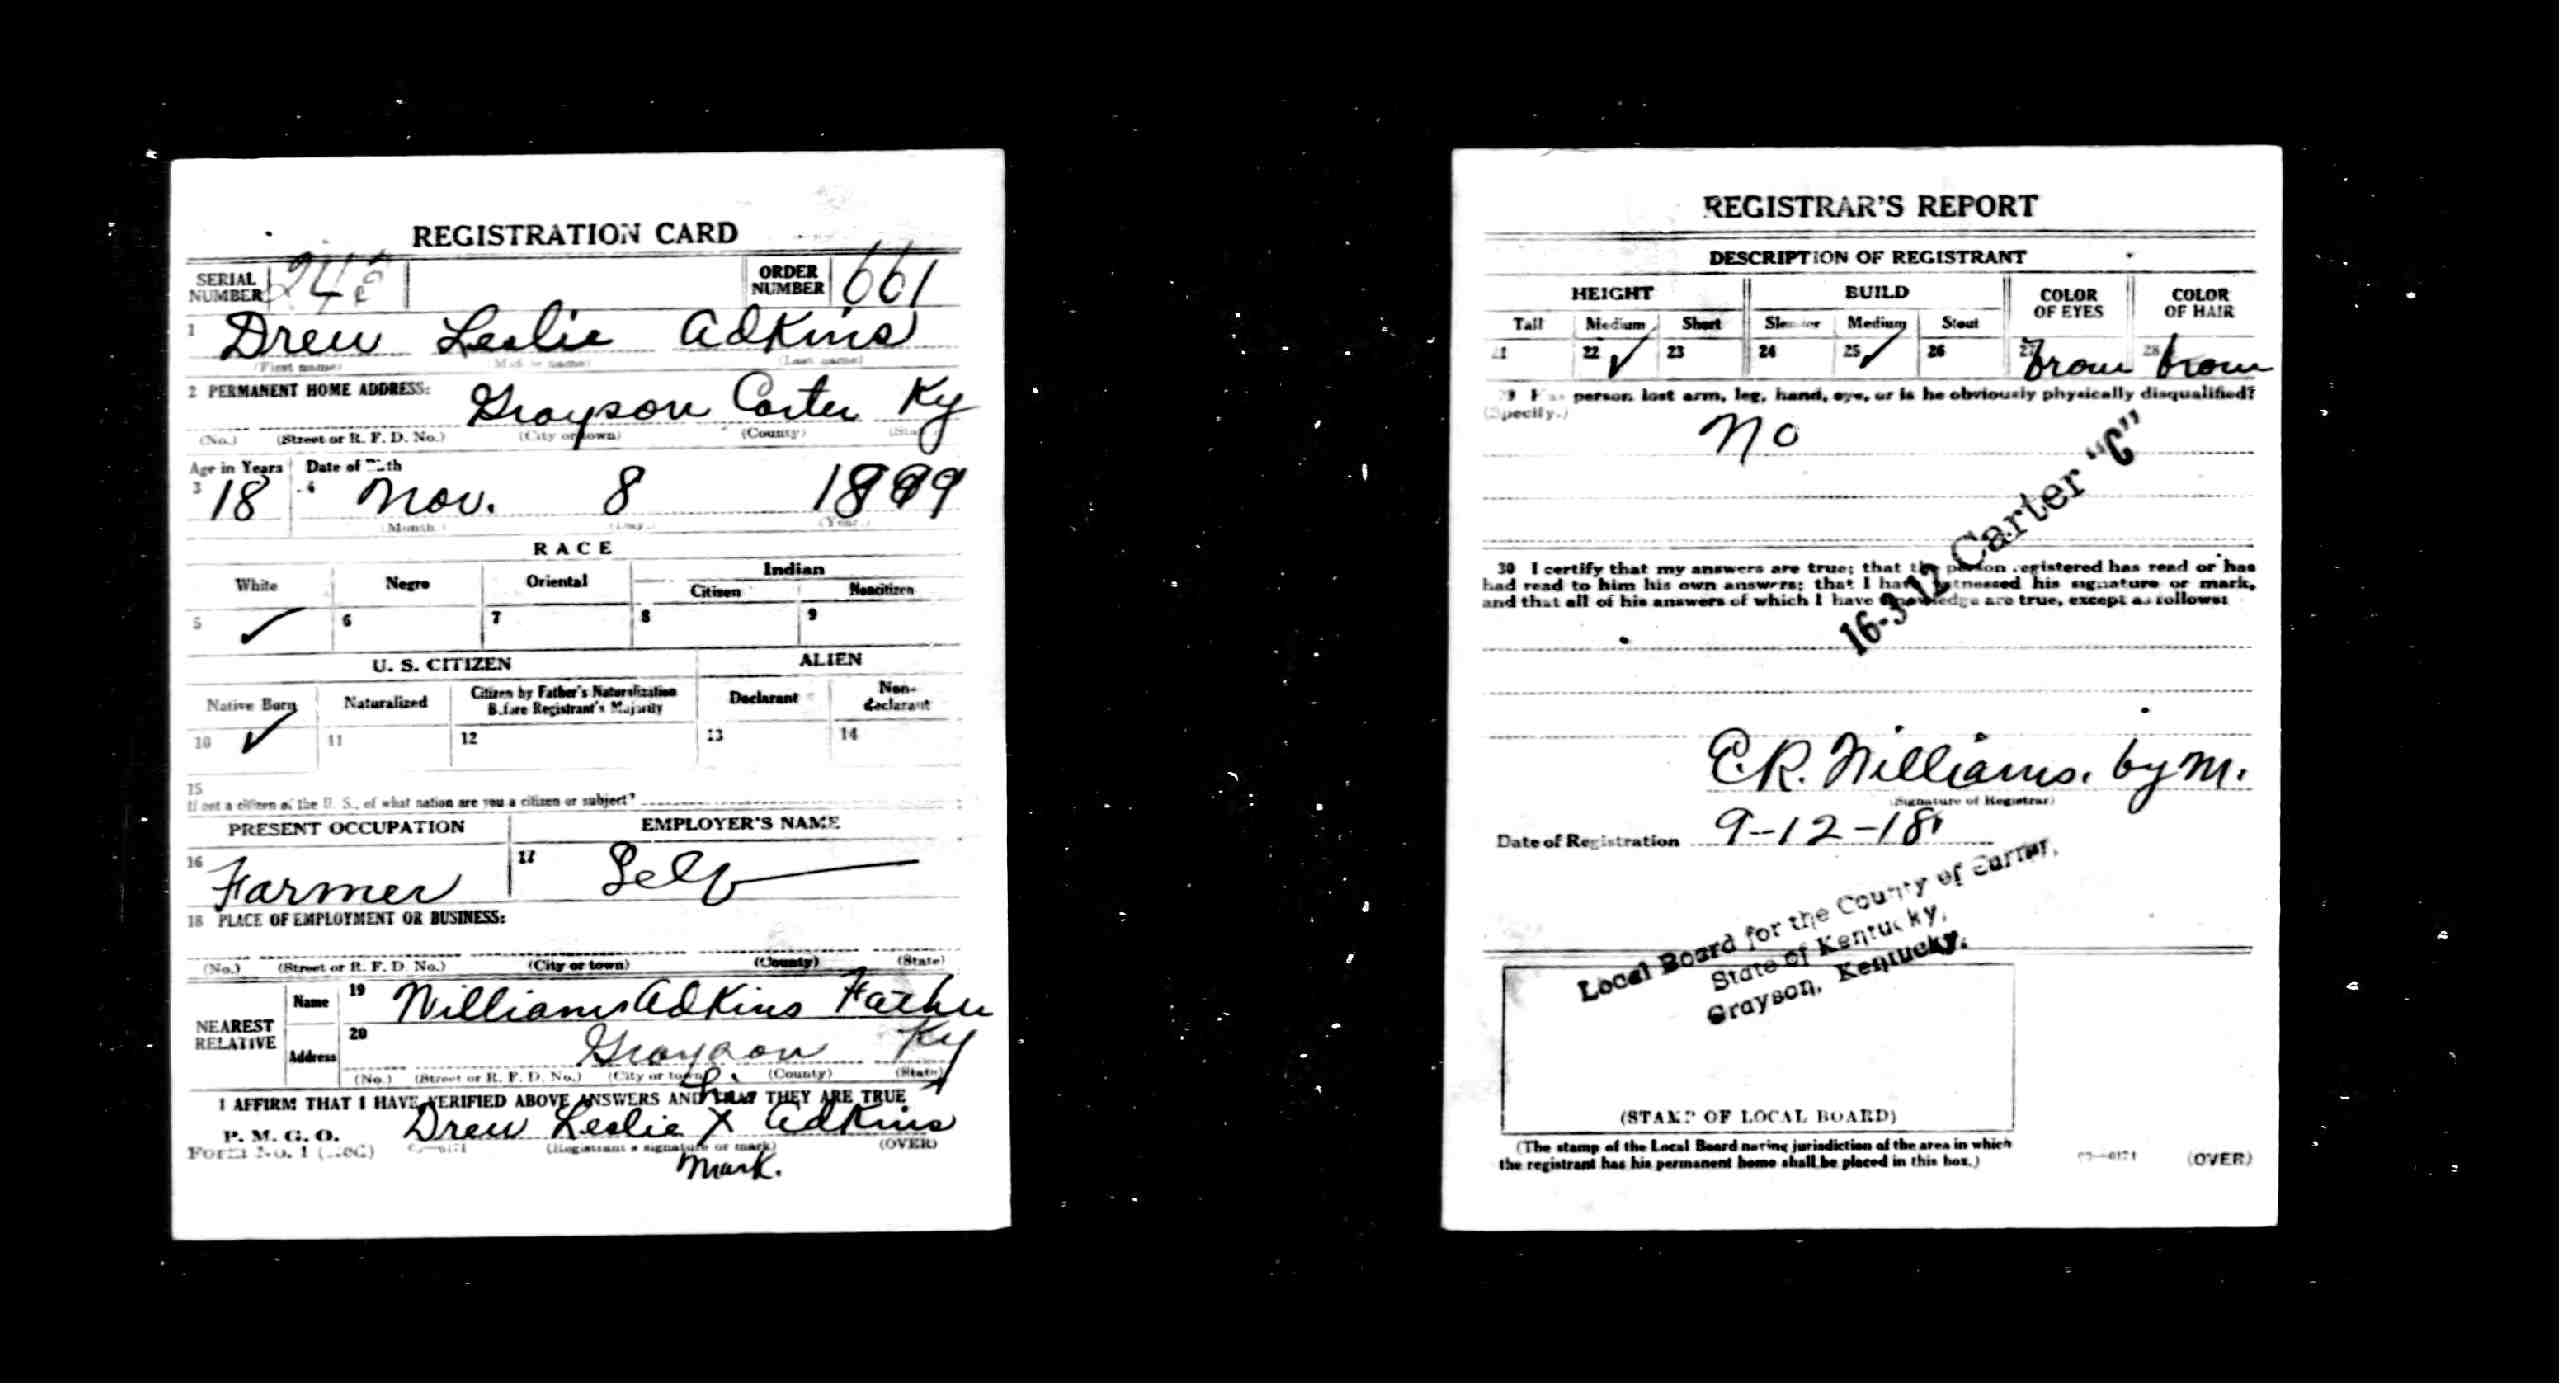 REGISTRATION CARD
SERIAL NUMBER
ORDER NUMBER 661
1 Drew Leslie Adkins
(First name) (Middle name) (Last name)
2 PERMANENT HOME ADDRESS:
Grayson Carter Ky
(No.) (Street or R. F. D. No.) (City or town) (County) (State)
Age in Years Date of Birth
3 18 4 Nov. 8 1899
(Month) (Day) (Year)
RACE
White Negro Oriental Indian
Citizen Noncitizen
5 ✓ 6 7 8 9
U. S. CITIZEN ALIEN
Native Born Naturalized Citizen by Father's Naturalization Before Registrant's Majority Declarant Non-declarant
10 ✓ 11 12 13 14
15
If not a citizen of the U. S., of what nation are you a citizen or subject?
PRESENT OCCUPATION EMPLOYER'S NAME
16 Farmer 17 Self
18 PLACE OF EMPLOYMENT OR BUSINESS:
(No.) (Street or R. F. D. No.) (City or town) (County) (State)
NEAREST RELATIVE
Name 19 William Adkins Father
Address 20 Grayson Ky
(No.) (Street or R. F. D. No.) (City or town) (County) (State)
I AFFIRM THAT I HAVE VERIFIED ABOVE ANSWERS AND THAT THEY ARE TRUE
P. M. G. O.
Drew Leslie X Adkins
Form No. 1 (Red) (Registrant's signature or mark) (OVER)
mark.
REGISTRAR'S REPORT
DESCRIPTION OF REGISTRANT
HEIGHT BUILD COLOR OF EYES COLOR OF HAIR
Tall Medium Short Slender Medium Stout
21 22 ✓ 23 24 25 ✓ 26 27 brown 28 brown
29 Has person lost arm, leg, hand, eye, or is he obviously physically disqualified?
(Specify.)
No
16-3-12 Carter "C"
30 I certify that my answers are true; that the person registered has read or has
had read to him his own answers; that I have witnessed his signature or mark,
and that all of his answers of which I have knowledge are true, except as follows:
E.R. Williams. by M.
(Signature of Registrar)
Date of Registration 9-12-18
Local Board for the County of Carter,
State of Kentucky,
Grayson, Kentucky.
(STAMP OF LOCAL BOARD)
(The stamp of the Local Board having jurisdiction of the area in which
the registrant has his permanent home shall be placed in this box.)
(OVER)